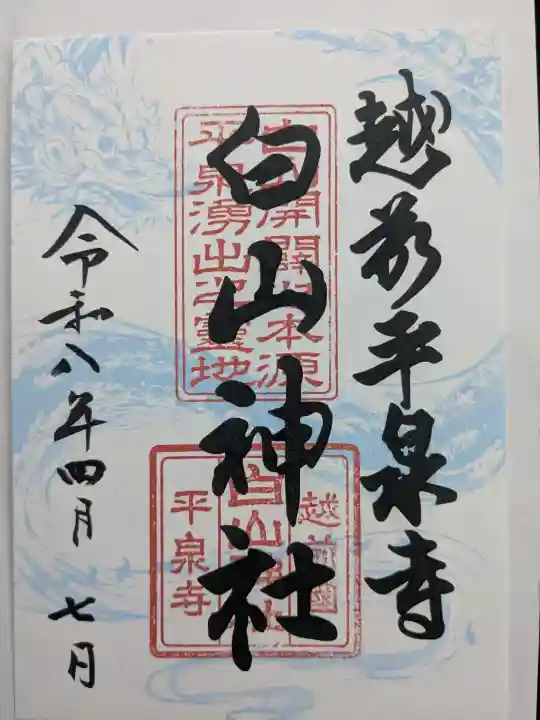 越前平泉寺
白山神社
令和八年四月 七日
開闢 本源
平泉湧出 霊地
越前國
白山神社
平泉寺